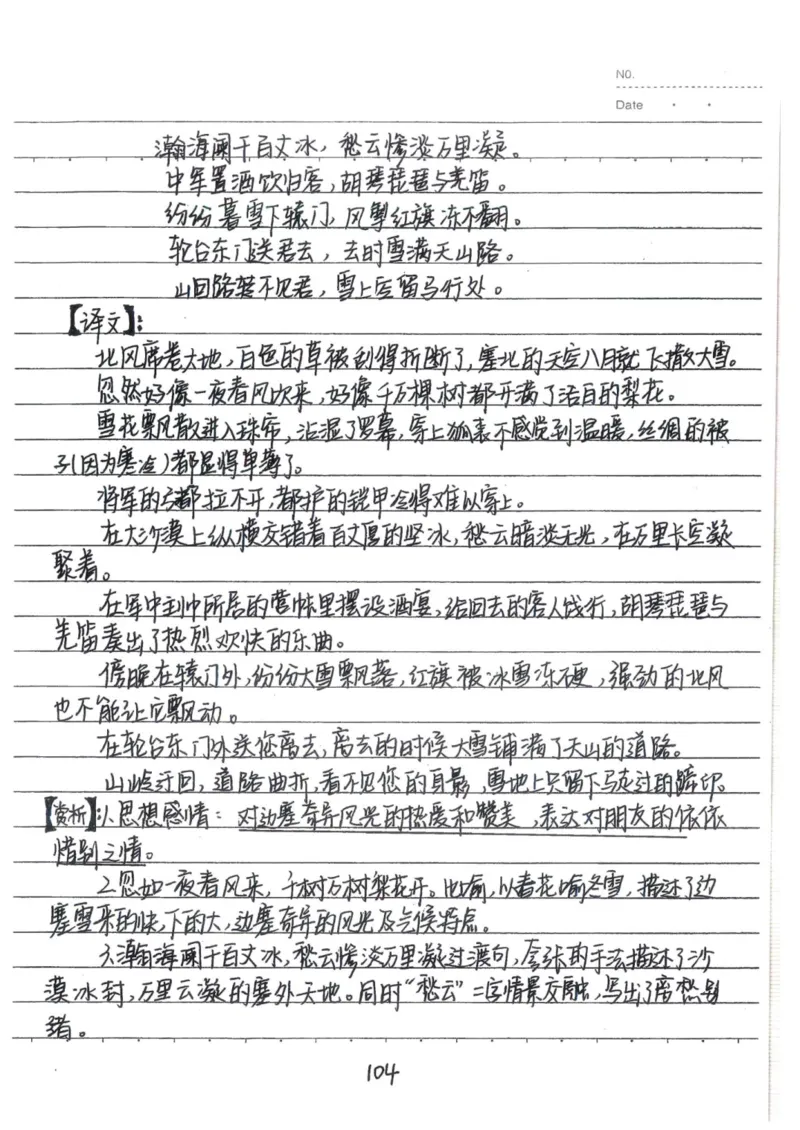 NO.
Date
瀚海阑干百丈冰，愁云惨淡万里凝。
中军置酒饮归客，胡琴琵琶与羌笛。
纷纷暮雪下辕门，风掣红旗冻不翻。
轮台东门送君去，去时雪满天山路。
山回路转不见君，雪上空留马行处。
【译文】：
北风席卷大地，白色的草被刮得折断了，塞北的天空八月就飞撒大雪。
忽然好像一夜春风吹来，好像千万棵树都开满了洁白的梨花。
雪花飘散进入珠帘，沾湿了罗幕，穿上狐裘不感觉到温暖，丝绸的被
子(因为寒冷)都显得单薄了。
将军的弓都拉不开，都护的铠甲冷得难以穿上。
在大沙漠上纵横交错着百丈厚的坚冰，愁云暗淡无光，在万里长空凝
聚着。
在军中主帅所居的营帐里摆设酒宴，给回去的客人饯行，胡琴琵琶与
羌笛奏出了热烈欢快的乐曲。
傍晚在辕门外，纷纷大雪飘落，红旗被冰雪冻硬，强劲的北风
也不能让它飘动。
在轮台东门外送您离去，离去的时候大雪铺满了天山的道路。
山岭迂回，道路曲折，看不见您的身影，雪地上只留下马走过的蹄印。
【赏析】：1.思想感情：对边塞奇异风光的热爱和赞美，表达对朋友的依依
惜别之情。
2.忽如一夜春风来，千树万树梨花开。比喻，以春花喻冬雪，描述了边
塞雪来的快，下的大，边塞奇异的风光及气候特点。
3.瀚海阑干百丈冰，愁云惨淡万里凝过渡句，夸张的手法描述了沙
漠冰封，万里云凝的塞外天地。同时“愁云”二字情景交融，写出了离愁别
绪。
104